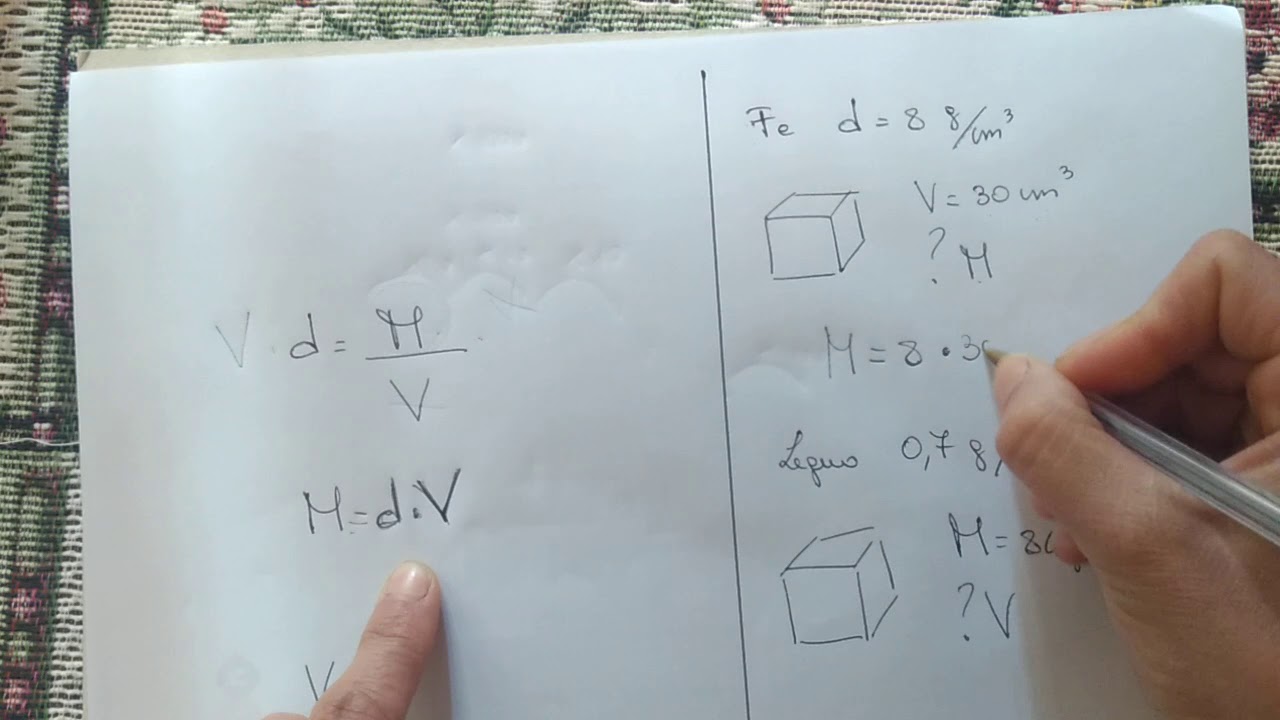 V · d = M / V
M = d · V
V
Fe d = 8 g/cm³
V = 30 cm³
? M
M = 8 · 30
Legno 0,7 g/
M = 80
? V